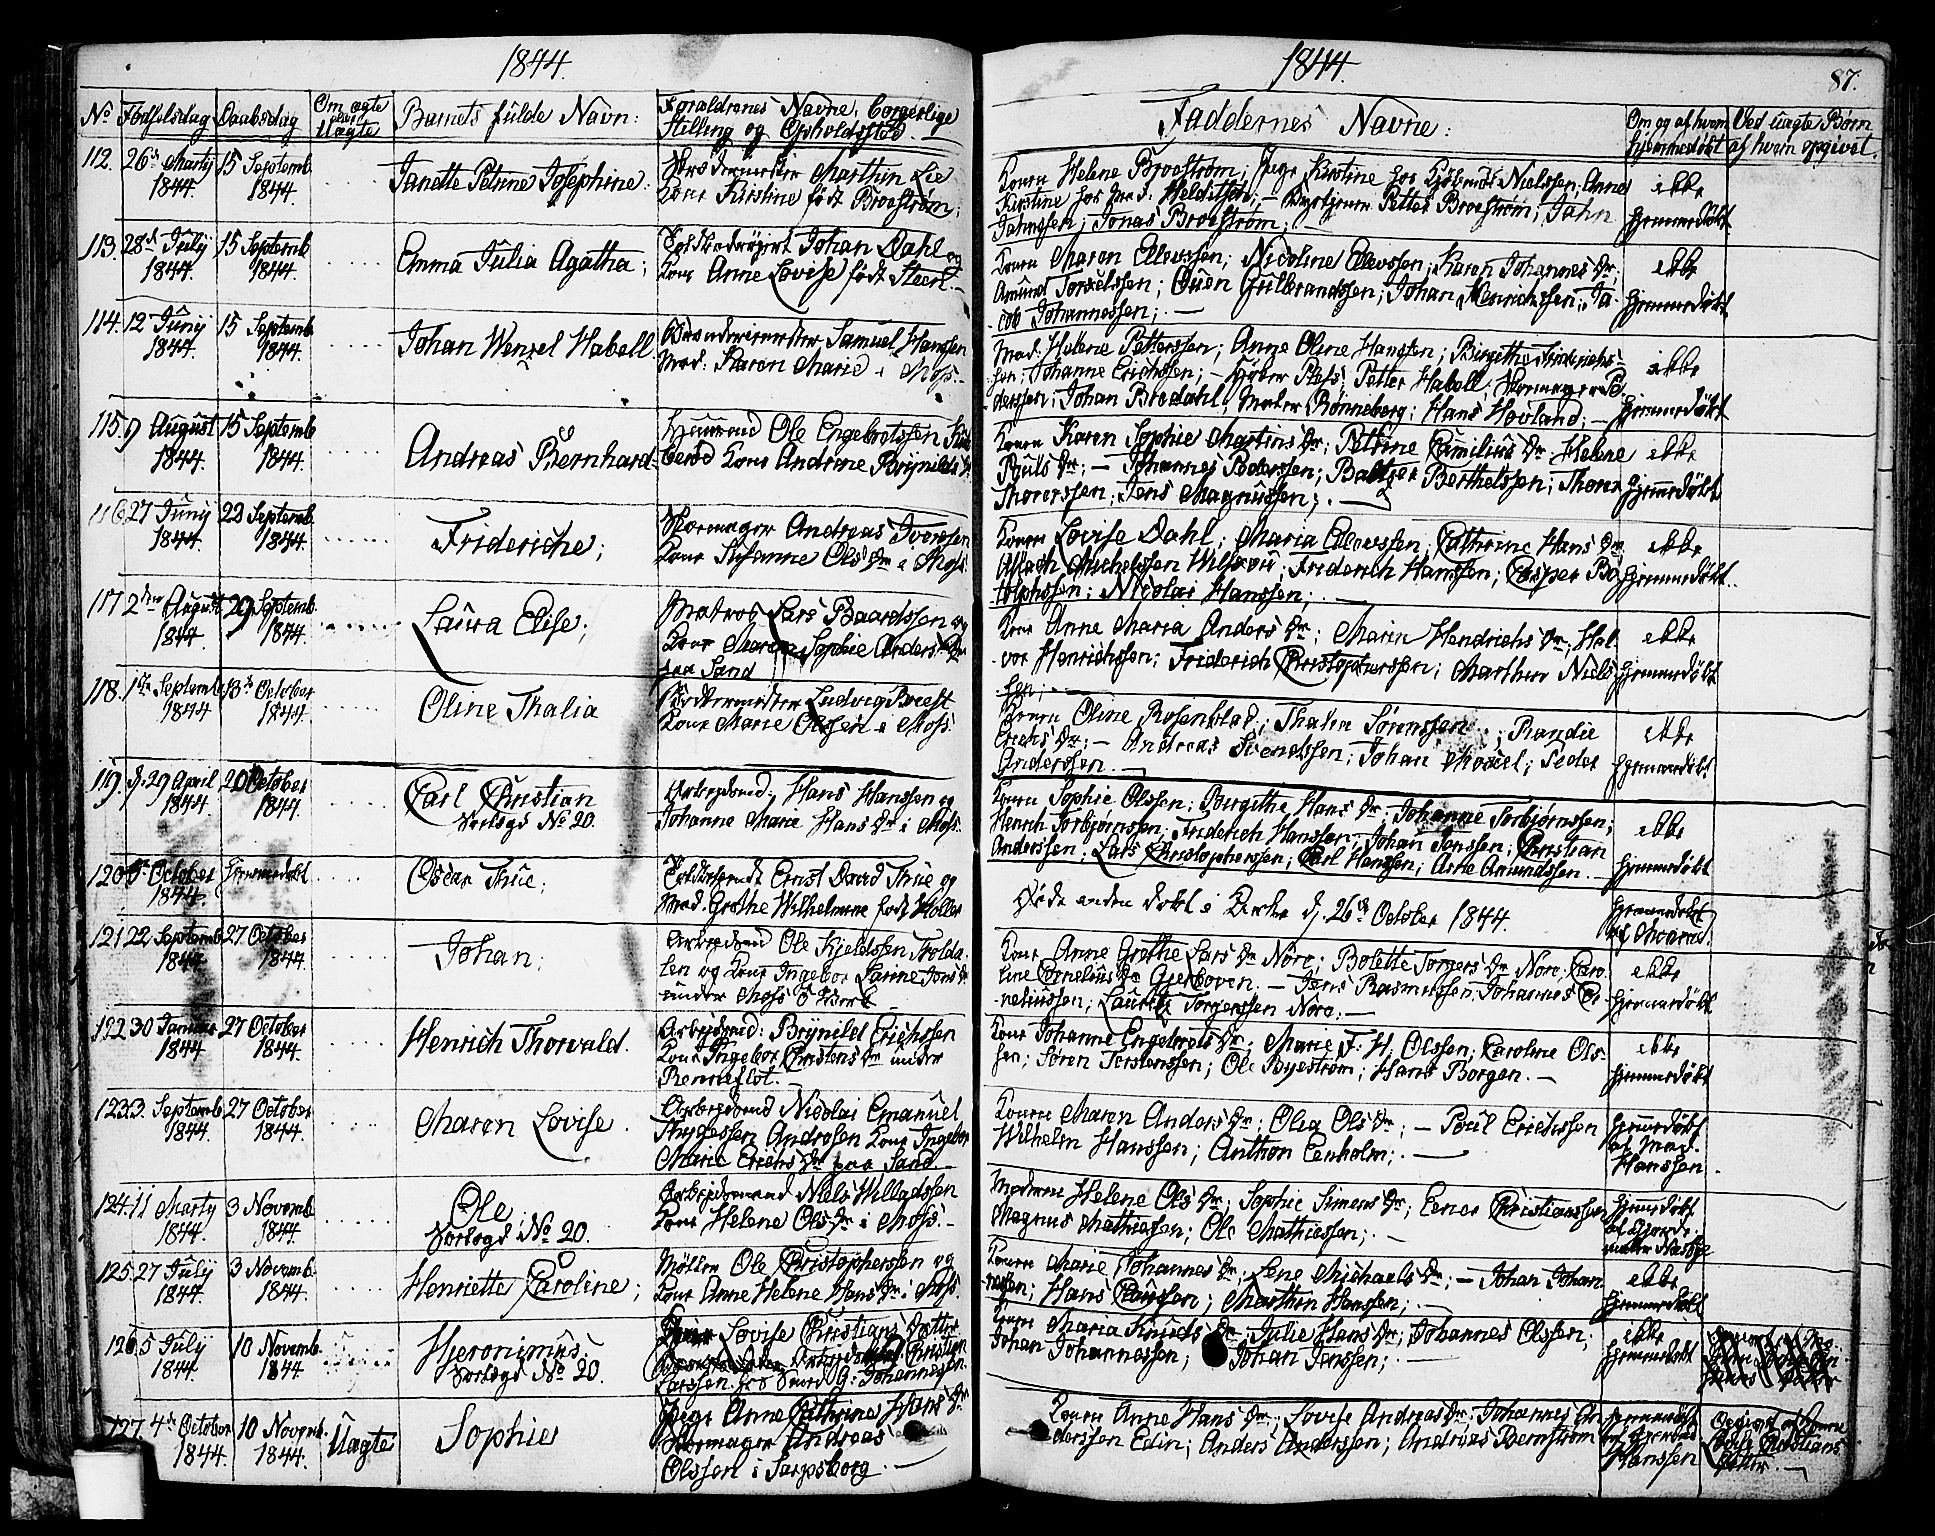 1844.
No Fødselsdag Daabsdag Om ægte eller Uægte Barnets fulde Navn: Forældrenes Navne, borgerlige Stilling og Opholdssted.
112. 26de Marty 1844. 15 Septemb 1844. Janette Petrine Josephine. Marthin Lie
Kone Kirstine født Broström;
113. 28de July 1844. 15 Septemb 1844. Emma Julia Agatha; Johan Dahl og
Kone Anne Lovise født Steen.
114. 12 Juny 1844. 15 Septemb 1844. Johan Wenzel Habell. Samuel Hanssen
Mad: Karen Marie i Moss.
115. 9 August 1844. 15 Septemb 1844. Andreas Bernhard. Huusmand Ole Engebretssen
Kone Andrine Brynilds Dr
116. 27 Juny 1844. 22 Septemb 1844. Frideriche; Skomager Andreas Iverssen
Kone Susanne Ols Dr i Moss.
117 2den August 1844. 29 Septemb. 1844. Laura Elise; Matros Lars Baardssen og
Kone Maren Sophie Anders Dr
paa Sand
118. 1ste Septemb 1844 13de October 1844. Oline Thalia Ludvig Brest
Kone Marie Olssen i Moss.
119. d. 29 April 1844. 20 October 1844. Carl Christian
Vorlsgd No 20. Arbejdsmd: Hans Hanssen og
Johanne Marie Hans Dr i Moss.
120 October 1844. Hjemmedøbt Oscar Thue; Ernst David Thue og
Mad. Grethe Wilhelmine født Møller
121 22 Septemb 1844. 27 October 1844. Johan; Arbejdsmd Ole Kjeldssen
og Kone Ingebor
under Moss
122 30 Januar 1844. 27 October 1844. Henrich Thorvald. Arbejdsmd: Brynild Erichssen
Kone Ingebor Christens Dr under
Renneflot.
123 3. Septemb 1844. 27 October 1844. Maren Lovise. Arbejdsmd Nicolai Emanuel
Thygessen Androsen Kone Ingebor
Marie Erichs Dr paa Sand
124. 11 Marty 1844. 3 Novemb. 1844. Ole
Vorlsgd No 20. Arbejdsmand Niels Willadssen
Kone Helene Ols Dr i Moss.
125. 27 July 1844. 3 Novemb. 1844. Henriette Caroline; Møller Ole Christophersen og
Kone Anne Helene Hans Dr i Moss.
126. 5 July 1844. 10 Novemb. 1844. Hjeronimus.
Vorlsgd No 20. Lovise Christians Datter
Christian
Larssen hos G: Johannessen.
127. 4de October 1844. 10 Novemb. 1844. Uægte Sophie Pige Anne Cathrine Hans Dr
Skomager Andreas
Olssen i Sarpsborg.
1844. 87.
Faddernes Navne: Om og af hvem hjemmedøbt Ved Uægte Børn af hvem opgivet.
Konen Helene Broström; Pige Kirstine hos Kjøbmd Nielssen; Anne
Kirstine hos Petter Broström; Jahn
Jahnssen; Jonas Broström; ikke hjemmedøbt
Konen Maren Ellevssen; Nicoline Ellevssen; Karen Johannes Dr;
Amund Torkelssen; Ouen Gulbrandssen; Johan Henrichssen; Ja-
cob Johannessen; ikke hjemmedøbt
Mad. Helene Petterssen; Anne Oline Hanssen; Birgithe Friderichs-
sen; Johanne Erichssen; Petter Habell; Skomager Pe-
derssen; Johan Bredahl, Maler Rønneberg; Hans Hovland; ikke hjemmedøbt
Konen Karen Sophie Martins Dr; Petrine Camilius Dr Helene
Pouls Dr; Johannes Pederssen; Baltzer Berthelssen; Thorer
Thorerssen; Jens Magnussen; ikke hjemmedøbt
Konen Lovise Dahl; Maria Ellevssen; Cathrine Hans Dr
Aslach Michelssen; Friderich Hanssen; Casper
Nicolai Hanssen; ikke hjemmedøbt.
Kone Anne Maria Anders Dr; Maren Hendrichs Dr; Hal-
vor Henrichssen; Friderich Christopherssen; Marthin Niels-
sen; ikke hjemmedøbt
Konen Oline Rosenblad; Thalia Sørenssen; Randie
Erichs Dr; Andreas Svendssen; Johan; Peder
Anderssen. ikke hjemmedøbt
Konen Sophie Olssen; Borgithe Hans Dr; Johanne Torbjørnssen;
Henrich Torbjørnssen; Friderich Hanssen; Johan Jenssen; Christian
Anderssen; Lars Christopherssen; Carl Hanssen; Arne Amundssen. ikke hjemmedøbt
Døde inden døbt i Kirke d. 26de October 1844. hjemmedøbt
Kone Anne Grethe Lars Dr Nore; Bolette Torgers Dr Nore; Caro-
line Cornelius Dr; Jens Rasmussen; Johannes Cor-
neliussen; Lauritz Torgerssen Nore; ikke hjemmedøbt
Kone Johanne Engebrets Dr; Marie F. H. Olssen; Caroline Ols-
sen; Søren Torstenssen; Ole Byestrøm; Hans Borgen. ikke hjemmedøbt
Konen Maren Anders Dr; Olia Ols Dr; Poul Erichssen
Wilhelm Hanssen; Anthon Eenholm; hjemmedøbt
af Mad.
Hanssen.
Moderen Helene Ols Dr; Sophie Simens Dr; Christianssen
Magnus Mathiessen; Ole Mathiessen; hjemmedøbt
Konen Marie Johannes Dr; Lene Michaels Dr; Johan Johan-
nessen; Hans Claussen; Marthin Hanssen; ikke hjemmedøbt
Konen Maria Knuds Dr; Julie Hans Dr; Johannes Olssen;
Johan Johannessen; Johan Jenssen; ikke hjemmedøbt
Konen Anne Hans Dr; Lovise Andreas Dr; Johannes An-
derssen Edin; Anders Anderssen; Andreas Bernström hjemmedøbt
Hanssen Opgivet af
Lovise Christians
Datter.